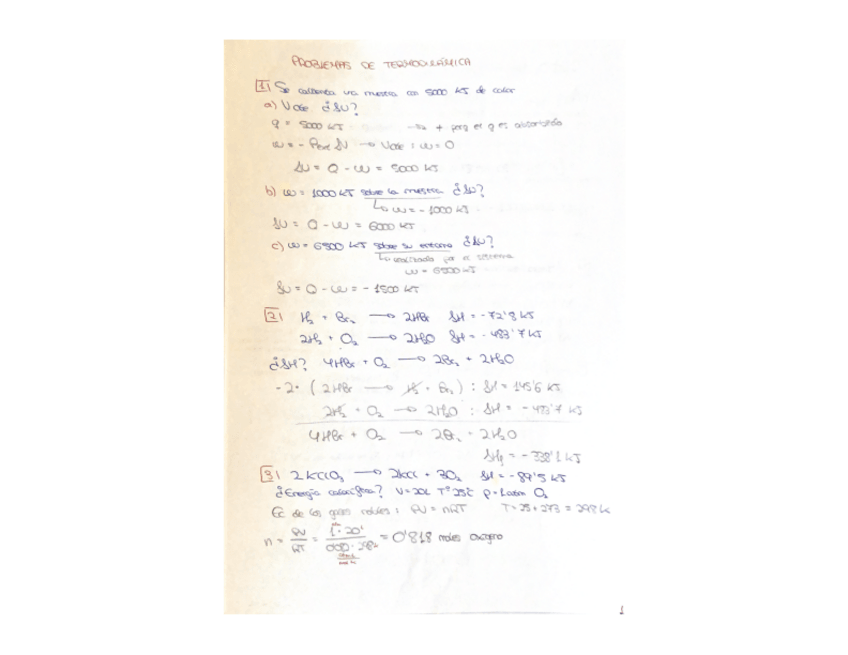 PROBLEMAS DE TERMODINÁMICA
1) Se calienta una muestra con 5000 KJ de calor
a) Vcte ¿ΔU?
q = 5000 KJ → + porq el q es absorbido
w = - Pext ΔV → Vcte : w = 0
ΔU = Q - W = 5000 KJ
b) w = 1000 KJ sobre la muestra ¿ΔU?
↳ w = - 1000 KJ
ΔU = Q - W = 6000 KJ
c) w = 6500 KJ sobre su entorno ¿ΔU?
↳ realizado por el sistema
w = 6500 KJ
ΔU = Q - W = - 1500 KJ
2) H₂ + Br₂ → 2HBr ΔH = -72'8 KJ
2H₂ + O₂ → 2H₂O ΔH = - 483'7 KJ
¿ΔH? 4HBr + O₂ → 2Br₂ + 2H₂O
-2· ( 2HBr → H₂ + Br₂ ) : ΔH = 145'6 KJ
2H₂ + O₂ → 2H₂O : ΔH = - 483'7 KJ
4HBr + O₂ → 2Br₂ + 2H₂O
ΔH = - 338'1 KJ
3) 2KClO₃ → 2KCl + 3O₂ ΔH = -89'5 KJ
¿Energía calorífica? V=20L Tª 25ºC P=1atm O₂
Ec de los gases : PV = nRT T = 25 + 273 = 298 K
n = PV/RT = 1 · 20 / 0'082 · 298 = 0'818 moles oxígeno
1